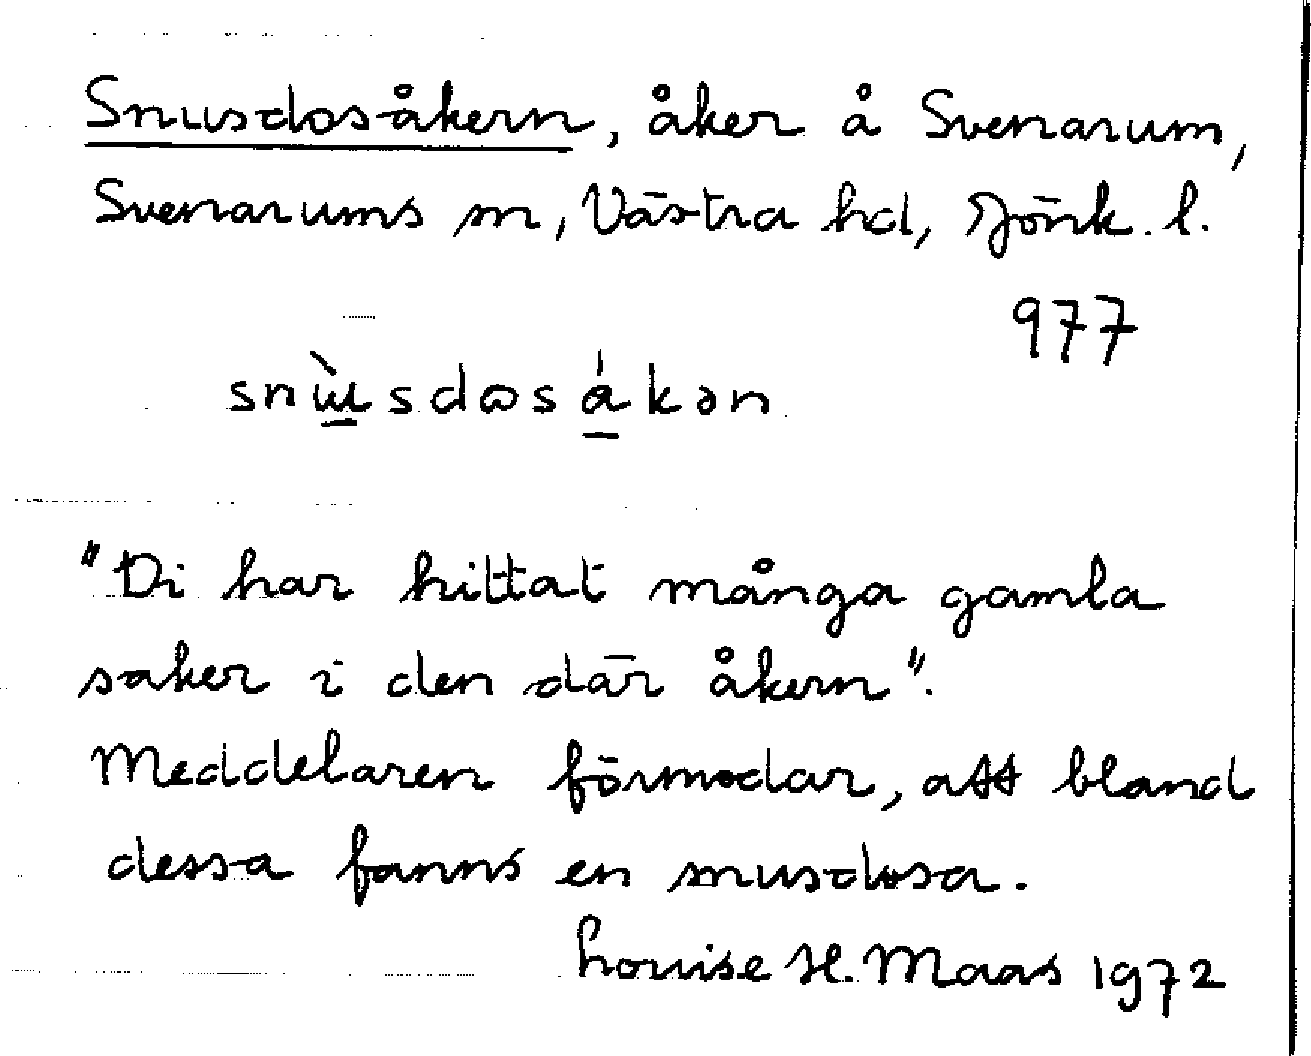 Snusdosåkern, åker å Svenarum,
Svenarums sn, Västra hd, Jönk. l.
977
snɯ̀sdɷsákən
"Di har hittat många gamla
saker i den där åkern".
Meddelaren förmodar, att bland
dessa fanns en snusdosa.
Louise H. Maas 1972